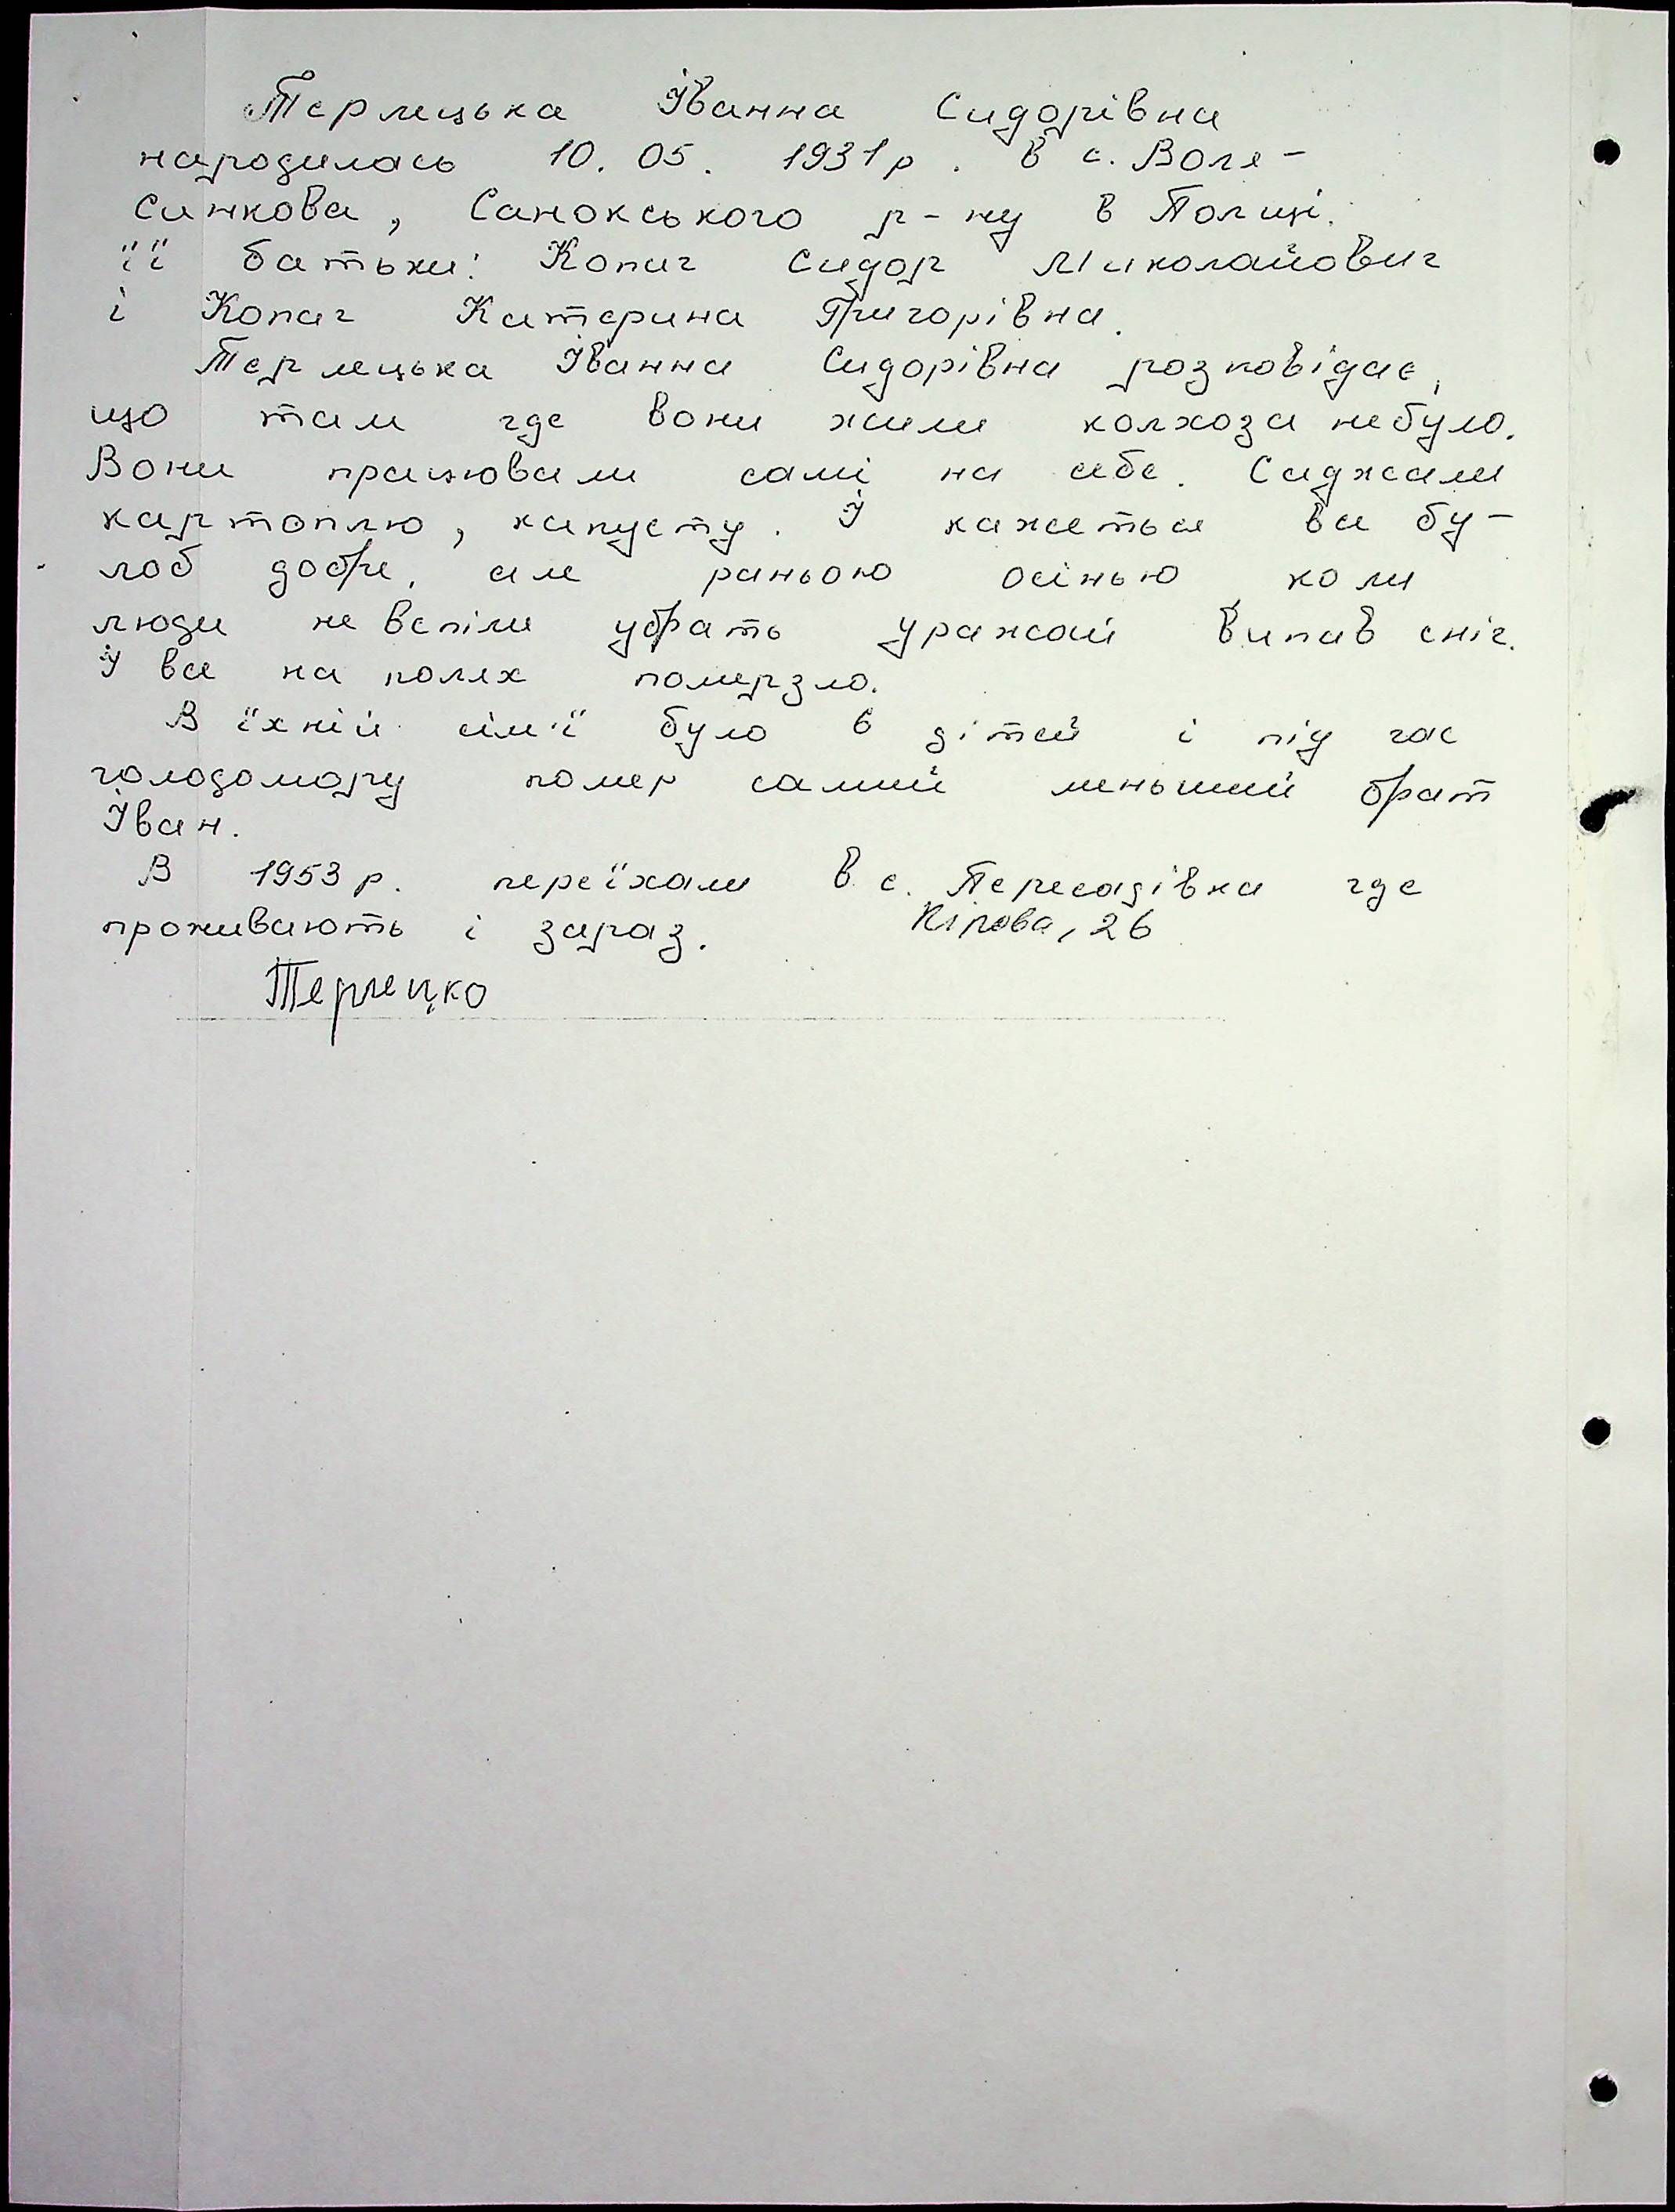 Терлецька Іванна Сидорівна
народилась 10. 05. 1931 р. в с. Воля-
Синкова, Санокського р-ну в Полщі.
її батьки: Копач Сидор Миколайович
і Копач Катерина Григорівна.
Терлецька Іванна Сидорівна розповідає,
що там где вони жили колхоза небуло.
Вони працювали самі на себе. Саджали
картоплю, капусту. І кажеться все бу-
лоб добре, але раньою осінью, коли
люди не вспіли убрать уражай випав сніг.
І все на полях померзло.
В їхній сім'ї було 6 дітей і під час
голодомору помер самий меньший брат
Іван.
В 1953 р. переїхали в с. Пересадівка где
проживають і зараз. Кірова, 26
Терлецко